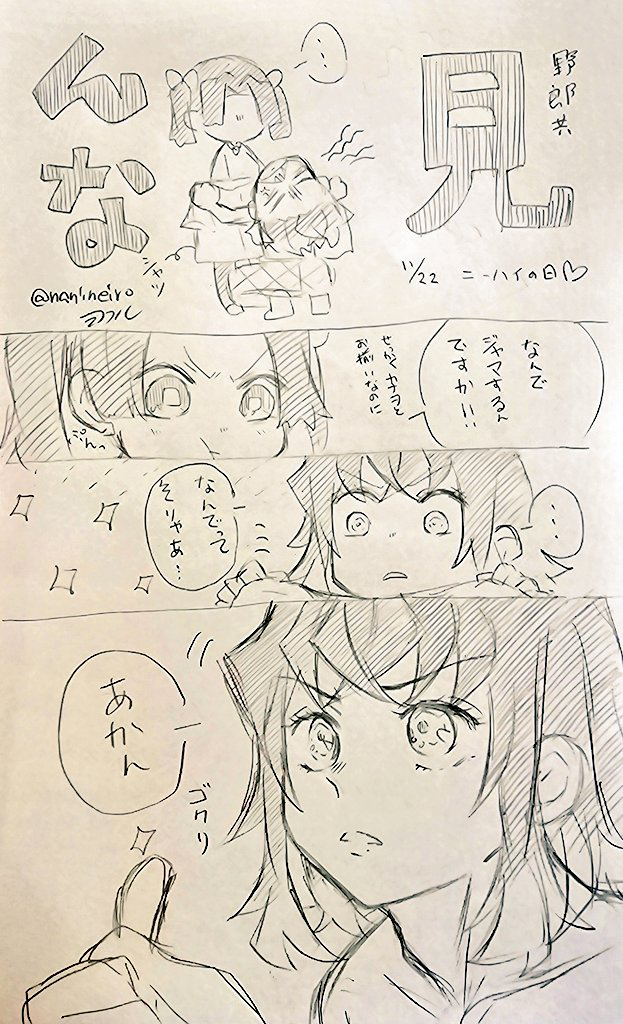 野郎共
見
んな
…
シャッ
11/22 ニーハイの日♡
@naniineiro
ヨフル
なんで
ジャマするん
ですか!!
せっかくカナヲと
お揃いなのに
ぷんっ
…
なんでって
そりゃあ…
あかん
ゴクリ